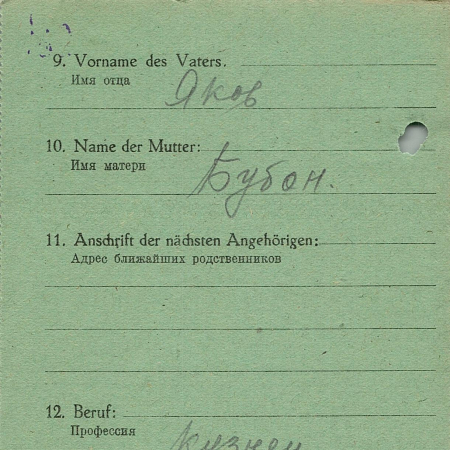 9. Vorname des Vaters.
Имя отца
Яков
10. Name der Mutter:
Имя матери
Бубон.
11. Anschrift der nächsten Angehörigen:
Адрес ближайших родственников
12. Beruf:
Профессия
кузнец